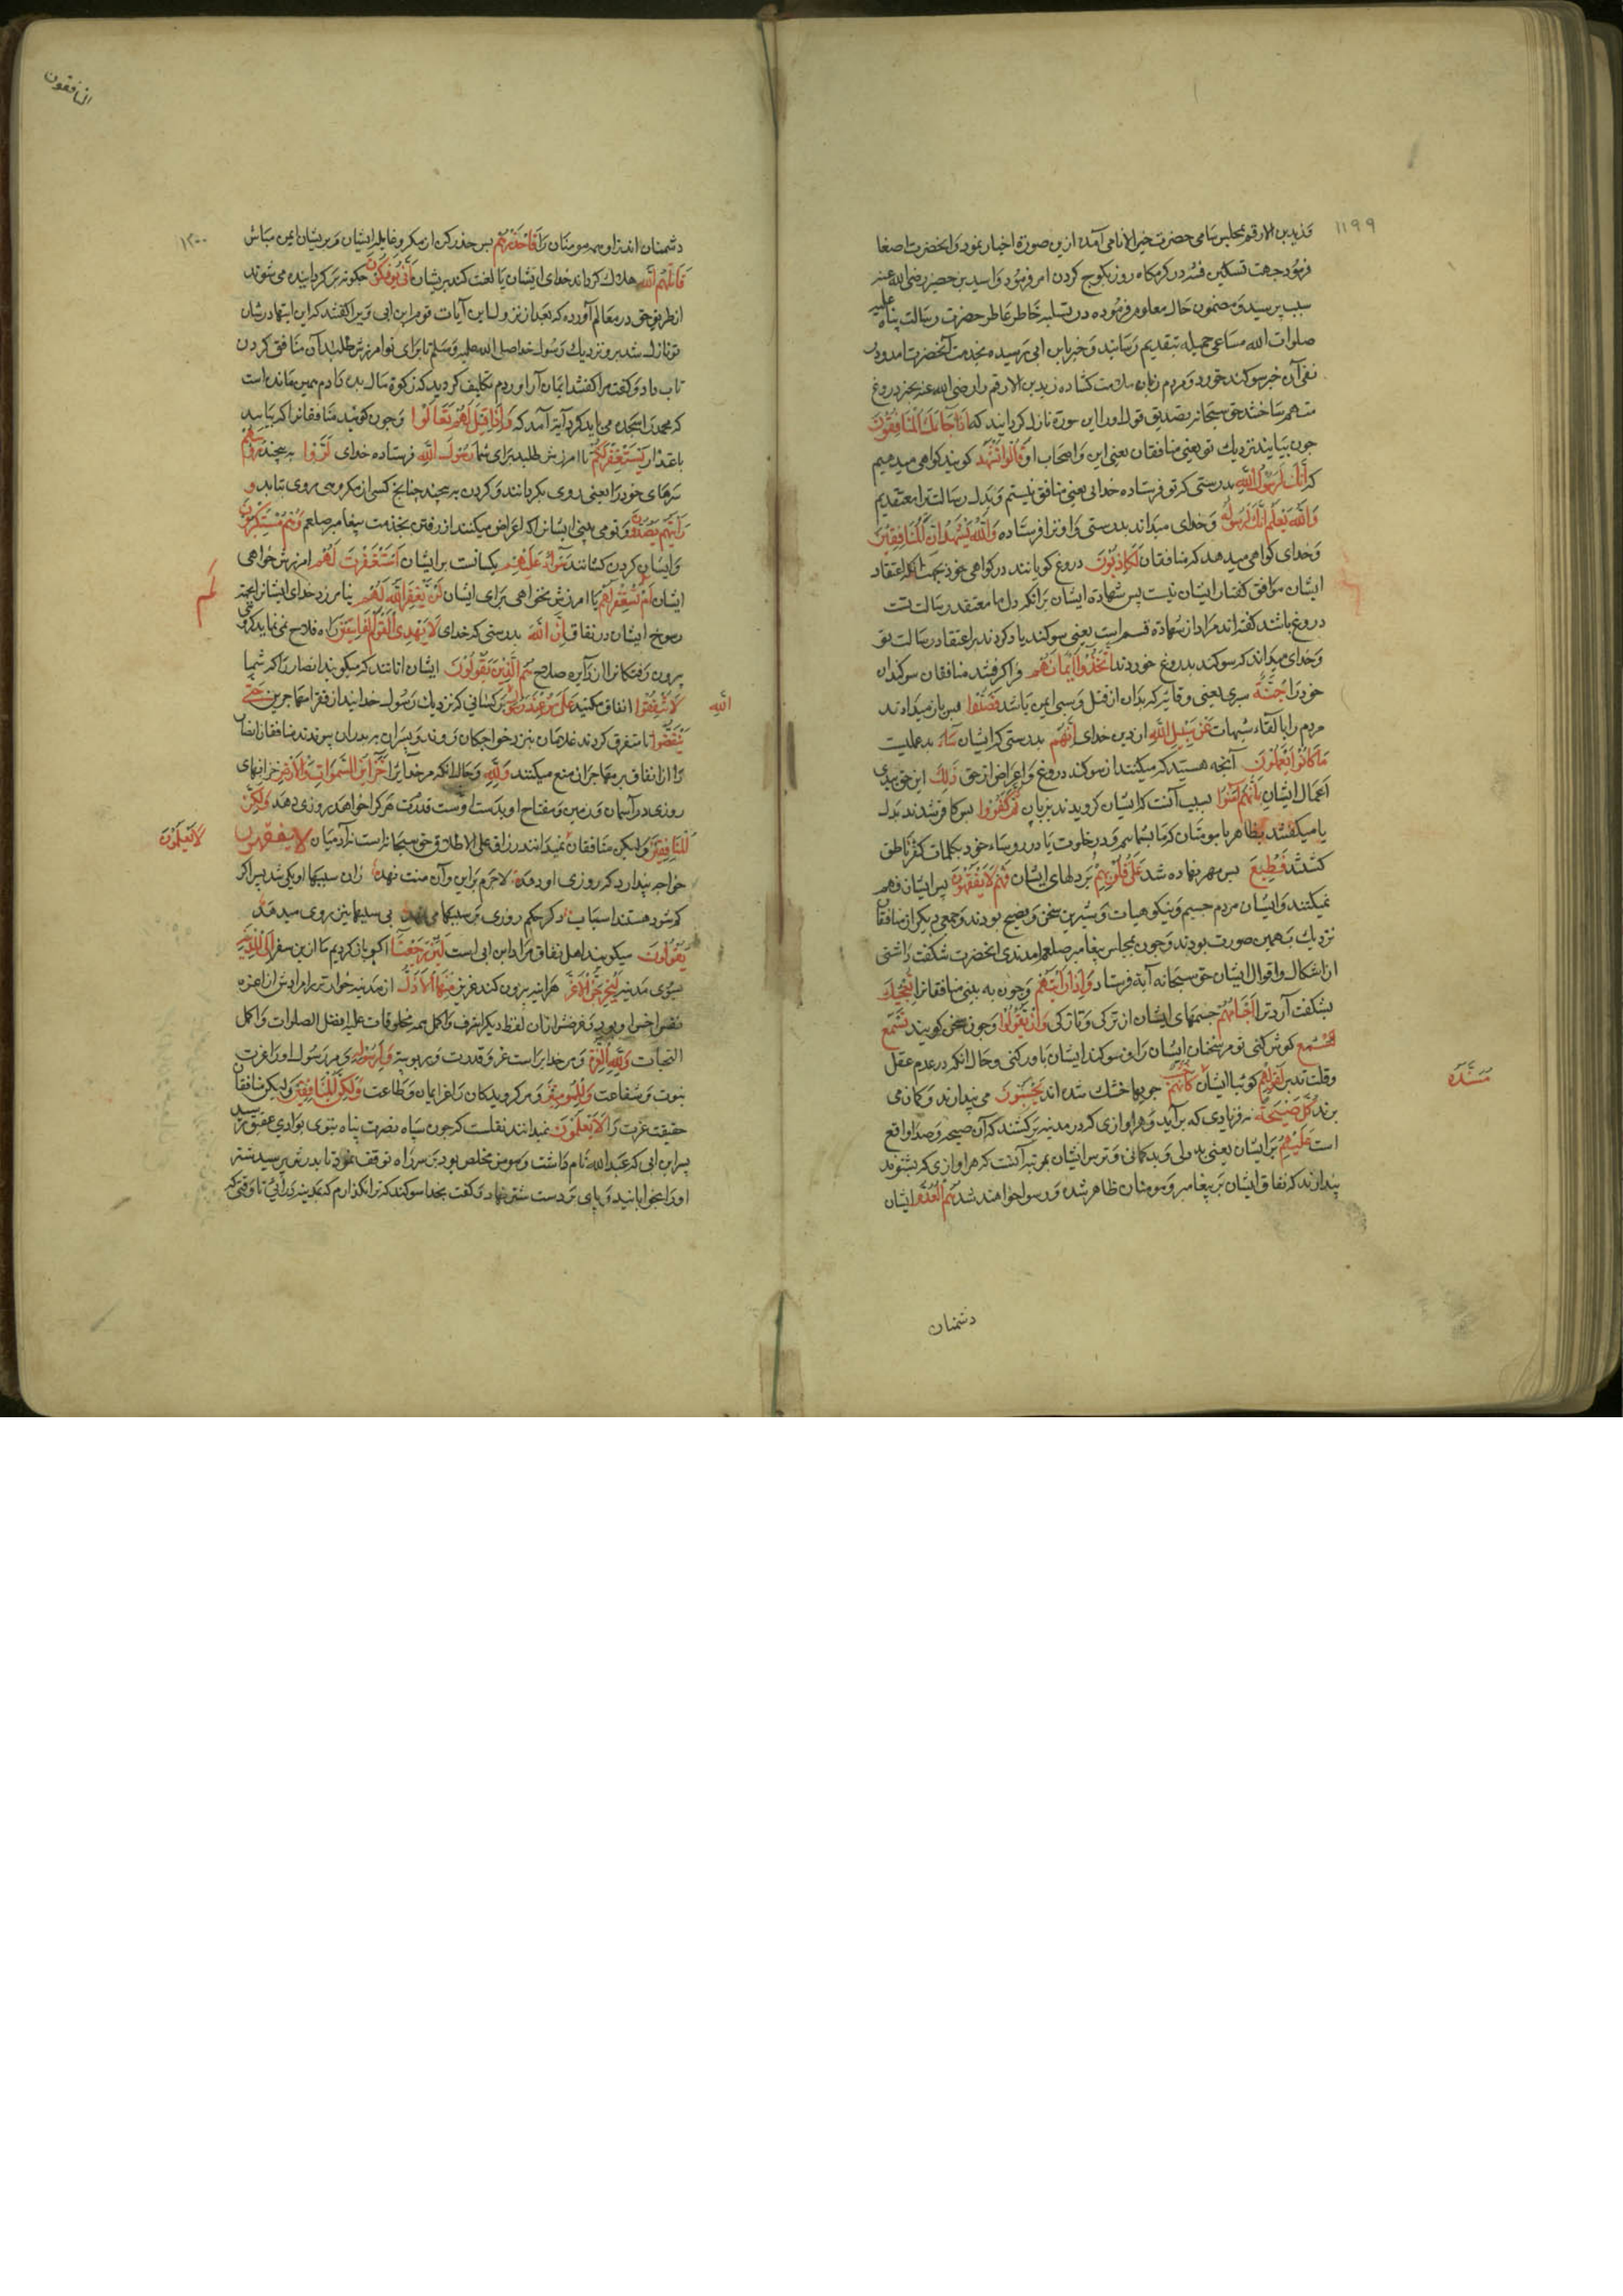 ۱۱۹۹
وزیدبن الارقم بمجلس سامی حضرت خیر الانامی آمده ازین صورة اخبار نمود و انحضرت اصغا
فرمود جهت تسکین فتنه در کرمکاه روز بکوچ کردن امر فرمود و اسید بن حضیر رضی الله عنه
سبب پرسید و مضمون حال معلوم فرموده در تسلیه خاطر عاطر حضرت رسالت پناه علیه
صلوات الله مساعی جمیله بتقدیم رسانید و خبر بابن ابی رسیده بخدمت آنحضرت امد و در
نفی آن خبر سوکند خورد و مردم زبان ملامت کشاده زید بن الارقم را رضی الله عنه بخبر دروغ
متهم ساختند حق سبحانه بتصدیق قول او را این سورة نازل کردانید که اذا جاءک المنافقون
چون بیایند نزدیک تو یعنی منافقان یعنی ابن و اصحاب او قالوا نشهد کویند کواهی میدهیم
که انک لرسول الله بدرستی که تو فرستاده خدائی یعنی منافق نیستیم و بدل رسالت ترا معتقدیم
والله یعلم انک لرسوله و خدای میداند بدرستی و او ترا فرستاده والله یشهد ان المنافقین
و خدای کواهی میدهد که منافقان لکاذبون دروغ کویانند در کواهی خود بجهت انکه اعتقاد
ایشان موافق کفتار ایشان نیست پس شهادة ایشان برانکه دل ما معتقد رسالت تست
دروغ باشد کفته اند مراد از شهادة قسم است یعنی سوکند یاد کردند بر اعتقاد رسالت تو
و خدای میداند که سوکند بدروغ خوردند اتخذوا ایمانهم فرا کرفتند منافقان سوکندان
خود را جنة سپری یعنی وقایه که بدان از قتل و سبی ایمن باشند فصدوا پس باز میدارند
مردم را بالقاء شبهات عن سبیل الله از دین خدای انهم بدرستی که ایشان ساء بد عملیست
ما کانوا یعملون آنچه هستند که میکنند از سوکند دروغ و اعراض از حق ذلک این حق بدی
اعمال ایشان بانهم امنوا بسبب آنست که ایشان کرویدند بزبان ثم کفروا پس کافر شدند بدل
یا میکفتند بظاهر با مومنان که ما بشماییم و در خلوت با در روساء خود بکلمات کفر ناطق
کشتند فطبع پس مهر نهاده شد علی قلوبهم بر دلهای ایشان فهم لا یفقهون پس ایشان فهم
نمیکنند و ایشان مردم جسیم و نیکو هیات و شیرین سخن و فصیح بودند و جمعی دیکر از منافقان
نزدیک بهمین صورت بودند و چون بمجلس پیغامبر صلعم امدندی انحضرت شکفت داشتی
از اشکال و اقوال ایشان حق سبحانه آیة فرستاد و اذا رایتهم و چون به بینی منافقانرا تعجبک
بشکفت آرد ترا اجسامهم جسمهای ایشان از ترکی و تازکی وان یقولوا و چون سخن کویند تسمع
تسمع کوش کنی تو مر سخنان ایشان را و بسوکند ایشان باور کنی و حال انکه در عدم عقل
و قلت تدبر لقولهم کوئیا ایشان کانهم خشب چوبها خشک شده اند یحسبون می پندارند و کمان می
مسندة
برند کل صیحة هر فریادی که برآید و هر اوازی که در مدینه برکشند که آن صیحه و صدا واقع
است علیهم بر ایشان یعنی بد دلی و بدکمانی و ترس ایشان بمرتبه آنست که هر اوازی که بشنوند
پندارند که نفاق ایشان بر پیغامبر و مومنان ظاهر شده و رسوا خواهند شد هم العدو ایشان
دشمنان
المنافقون
۱۲۰۰
دشمنان اند ترا و همه مومنان را فاحذرهم پس حذر کن از مکر و غایله ایشان و بر یشان ایمن مباش
قاتلهم الله هلاک کرداند خدای ایشان یا لعنت کند بریشان انی یؤفکون چکونه برکردانیده می شوند
از طریق حق در معالم آورده که بعد از نزول این آیات قوم ابن ابی ویرا کفتند که این ایتها در شان
تو نازل شد برو نزدیک رسول خدا صلی الله علیه وسلم تا برای تو امرزش طلبد آن منافق کردن
تاب داد و کفت مرا کفتند ایمان آر اوردم تکلیف کردید که زکوة مال بده دادم همین مانده است
که محمد را سجده می باید کرد آیة آمد که و اذا قیل لهم تعالوا و چون کویند منافقانرا که بیایید
باعتذار یستغفر لکم تا امرزش طلبد برای شما رسول الله فرستاده خدای لووا بپیچند رؤسهم
سرهای خود را یعنی روی بکردانند و کردن بپیچند چنانچه کسی از مکروهی روی بتابد و
رایتهم یصدون و تو می بینی ایشانرا که اعراض میکنند از رفتن بخدمت پیغامبر صلعم وهم مستکبرون
و ایشان کردن کشانند سواء علیهم یکسانست بر ایشان استغفرت لهم امرزش خواهی
لم
ایشان ام لم تستغفر لهم یا امرزش نخواهی برای ایشان لن یغفر الله لهم نیامرزد خدای ایشانرا بجهة
رسوخ ایشان در نفاق ان الله بدرستی که خدای لا یهدی القوم الفاسقین راه فلاح نمی نماید کروهی
بیرون رفتکانرا از دایره صلاح هم الذین یقولون ایشان انانند که میکویند انصار را که شما
الله
لا تنفقوا انفاق مکنید علی من عند رسول بر کسانی که نزدیک رسول خدایند از فقرا مهاجرین حتی
ینفضوا تا متفرق کردند غلامان بنزد خواجکان روند و پسران بر پدران پیوندند منافقان انصار
را از انفاق بر مهاجران منع میکنند ولله و حال انکه مر خدایرا خزاین السموات والارض خزانهای
روزی در آسمان و زمین و مفتاح او بدست اوست قدرت هر کرا خواهد روزی دهد ولکن
المنافقین و لیکن منافقان نمیدانند رزاق علی الاطلاق حق سبحانه است نه آدمیان لا یفقهون
لا یعلمون
خواجه پندارد که روزی او دهد لاجرم بر این و آن منت نهد زان سببها او یکی شد پس اکر
کم شود هستند اسباب دکر حکم روزی بر سببها می نهد بی سببها نیز روی میدهد
یقولون میکویند اهل نفاق مراد ابن ابی است لئن رجعنا اکر باز کردیم ما ازین سفر الی المدینة
بسوی مدینه لیخرجن الاعز هراینه بیرون کند عزیز منها الاذل از مدینه خوارتر را مرادش از اعز
نفس اخس او بود و غرضش از ان لفظ دیکر اشرف و اکمل همه مخلوقات علیه افضل الصلوات و اکمل
التحیات ولله العزة و مر خدایراست عز و قدرت و ربوبیة ولرسوله و مر رسول او را عزت
نبوت و شفاعت وللمؤمنین و مر کرویدکان را عز ایمان و طاعت ولکن المنافقین و لیکن منافقان
حقیقت عزت را لا یعلمون نمیدانند نقلست که چون سپاه نصرت پناه نبوی بوادی عقیق رسید
پسر ابن ابی که عبدالله نام داشت و مومن مخلص بود بر سر راه توقف نمود تا پدرش برسید شتر
او را بخوابانید و پای بر دست شتر نهاد و کفت بخدا سوکند که ترا نکذارم که بمدینه درآیی تا وقتی که